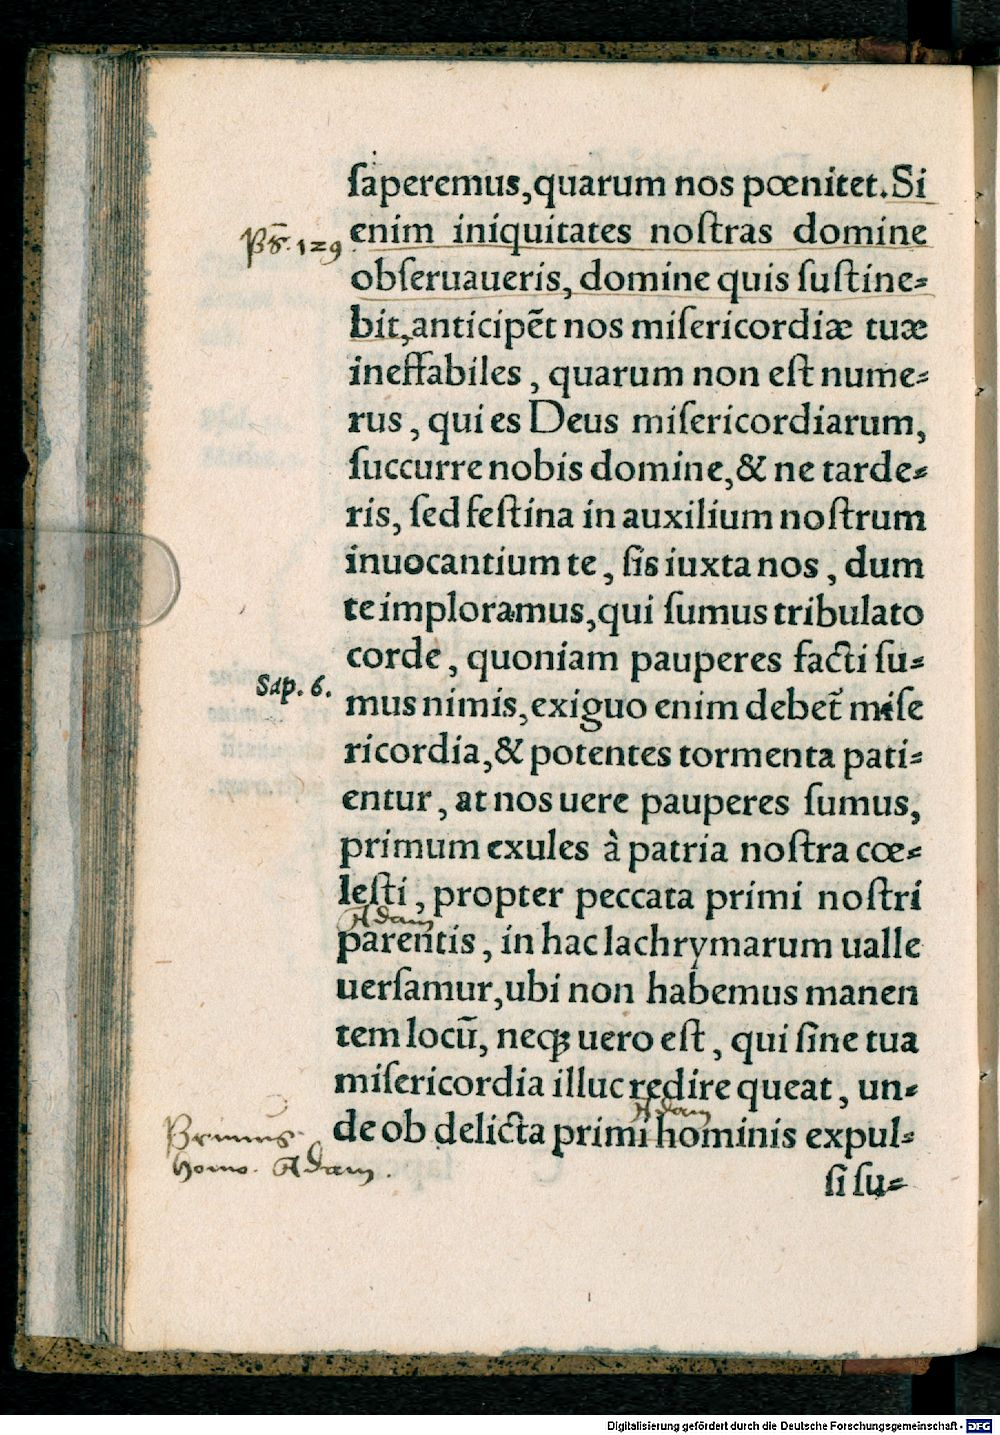 ſaperemus,quarum nos pœnitet.Si
Pſ. 129
enim iniquitates noſtras domine
obſeruaueris, domine quis ſuſtine⸗
bit,anticipẽt nos miſericordiæ tuæ
ineffabiles , quarum non eſt nume⸗
rus , qui es Deus miſericordiarum,
ſuccurre nobis domine,& ne tarde⸗
ris, ſed feſtina in auxilium noſtrum
inuocantium te , ſis iuxta nos , dum
te imploramus,qui ſumus tribulato
corde , quoniam pauperes facti ſu⸗
Sap. 6.
mus nimis,exiguo enim debet̃ miſe
ricordia,& potentes tormenta pati⸗
entur , at nos uere pauperes ſumus,
primum exules à patria noſtra cœ⸗
leſti , propter peccata primi noſtri
Adam
parentis , in hac lachrymarum ualle
uerſamur,ubi non habemus manen
tem locũ, neqꝫ uero eſt , qui ſine tua
miſericordia illuc redire queat , un⸗
Adam
de ob delicta primi hominis expul⸗
Primus
homo. Adam.
ſi ſu⸗
Digitalisierung gefördert durch die Deutsche Forschungsgemeinschaft - DFG